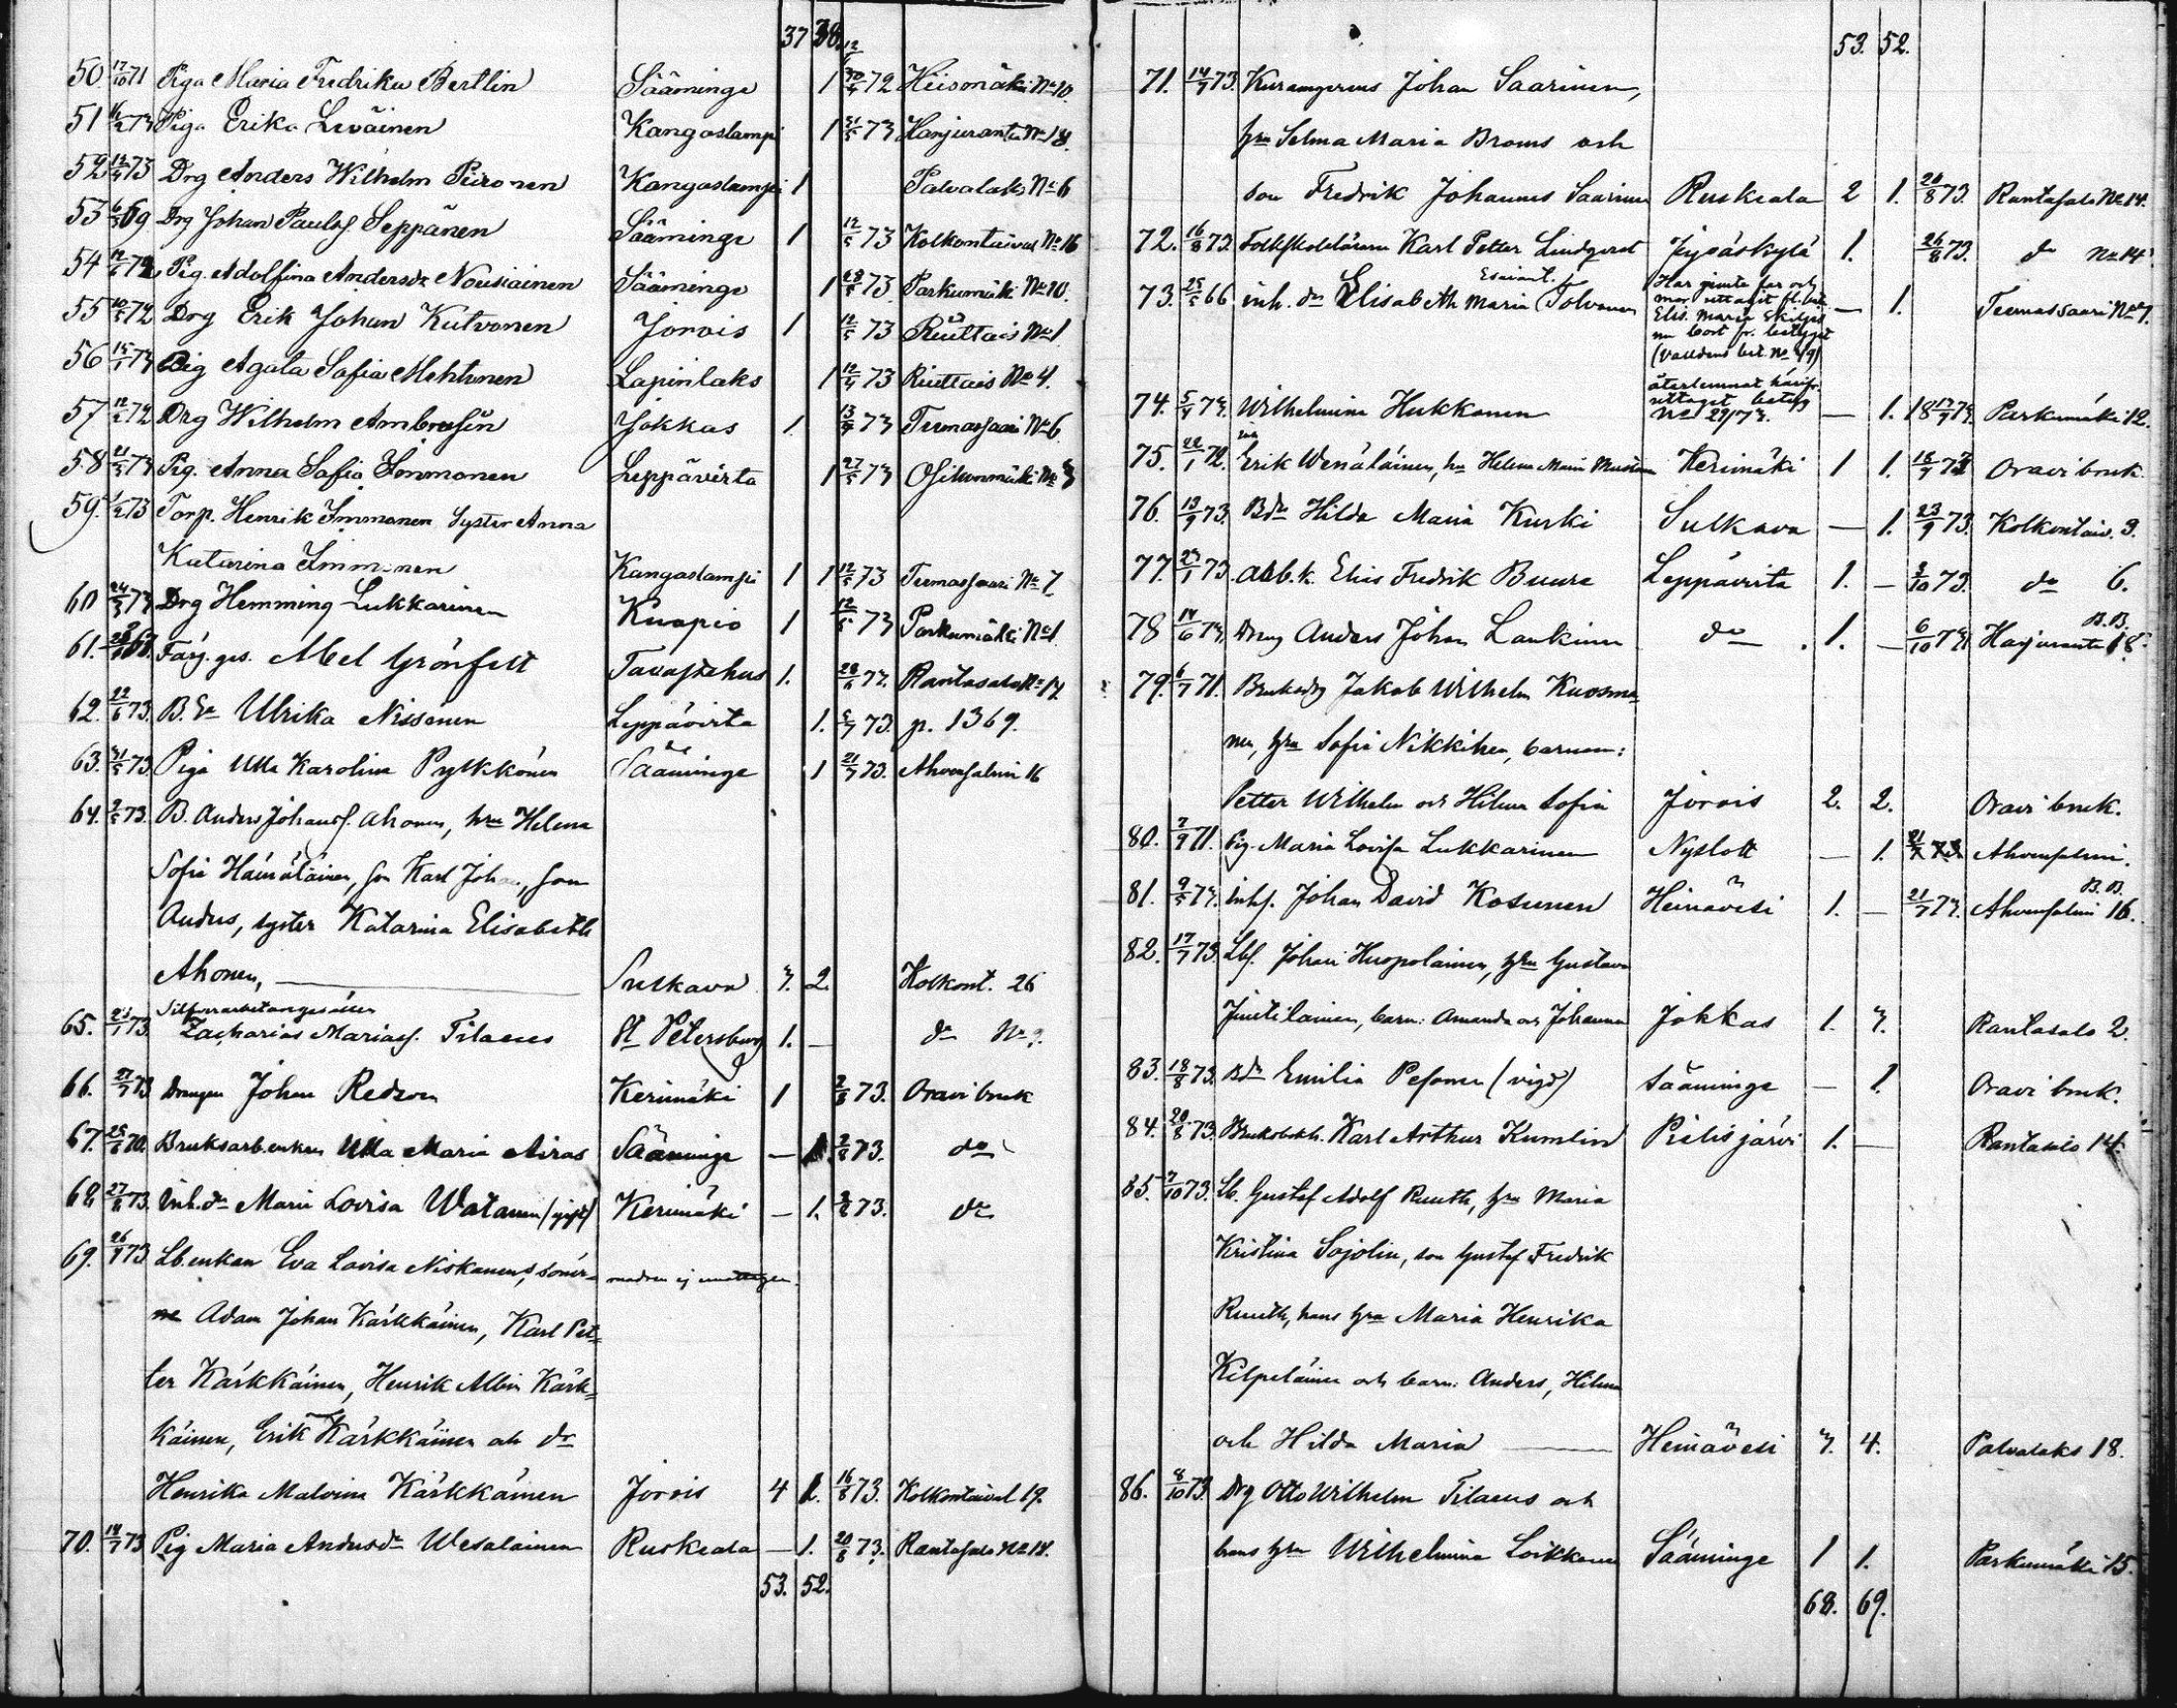 37 38.
50. 17/10 71 Piga Maria Fredrika Bertlin Sääminge 1 72 Heisomäki No 10.
51 73 Piga Erika Leväinen Kangaslampi 1 31/5 73 Harjuranta No 18.
52 73 Drg Anders Wilhelm Piironen Kangaslampi 1 Palvalaks No 6
53 69 Drg Johan Paulsf Seppänen Sääminge 1 12/5 73 Kolkontaival No 16
54 Pig. Adolfina Andersdr Nousiainen Sääminge 1 73 Parkumäki No 10.
55 10/5 72 Drg Erik Johan Kutvonen Jorois 1 12/5 73 No 1
56 Pig Agata Sofia Mehtonen Lapinlaks 1 73 No 4.
57 72 Drg Wilhelm Jokkas 1. 73 No 6
58 Pig. Anna Sofia Immonen Leppävirta 1 27/5 73
59. 73 Torp. Henrik Immonen Syster Anna
Katarina Immonen Kangaslampi 1 1 12/5 73 No 7
60 73 Drg Hemming Lukkarinen Kuopio 1 12/5 73 Parkumäki No 1
61. Färg. ges. Abel Grönfelt Tavastehus 1. 28/6 73. Rantasalo No 14.
62. 22/6 73. B. Ulrika Nissonen Leppävirta 1. 73. p. 1369.
63. 31/5 73. Piga Ulla Karolina Pylkkönen Sääminge 1 21/7 73. Ahvensalmi 16
64. 73. B. Anders Johansf. Ahonen, hru Helena
Sofia Hämäläinen, son Karl Johan, son
Anders, syster Katarina Elisabeth
Ahonen, Sulkava 3. 2. Kolkont. 26
Silfverarbetaregesällen
65. 73. Zacharias Mariasf. Tilaeus St Petersburg 1. — do No
66. 27/7 73 Drengen Johan Kerimäki 1 73. Oravi bruk
67. 70. Bruksarb.enkan Ulla Maria Airas Sääminge — 1. 73. do
68. 73. Inh. dr Maria Lovisa Watanen (gift) Kerimäki — 1. 73. do
69. 73 Lb.enkan Eva Lovisa Niskanens söner-
ne Adam Johan Kärkkäinen, Karl Pet-
ter Kärkkäinen, Henrik Albin Kärk-
käinen, Erik Kärkkäinen och dr
Henrika Malvina Kärkkäinen Jorois 4 1. 16/8 73. Kolkontaival 19.
70. 73 Pig Maria Andersdr Wesalainen Ruskeala — 1. 20/8 73. Rantasalo No 14.
53. 52.
53. 52.
71. 73. Johan Saarinen,
hru Selma Maria Broms och
son Fredrik Johannes Saarinen Ruskeala 2 1. 20/8 73. Rantasalo No 14.
72. 16/8 73. Folkskolelärare Karl Petter Lindqvist Jyväskylä 1. 26/8 73. do No 14.
73. 25/5 66 inh. dr Elisabeth Maria Tolvanen — 1. No 7.
74. Wilhelmina Hukkanen — 1. Parkumäki 12.
75. 72. Erik Wenäläinen, hru Helena Maria Kerimäki 1 1. Oravi bruk.
76. 13/9 73. Bdr Hilda Maria Kurki Sulkava — 1. 23/9 73. Kolkontaiv. 3.
77. 73. Arb. k. Elias Fredrik Buure Leppävirta 1. — 73. do 6.
78 14/6 73 Dreng Anders Johan Laukinen do 1. — 6/10 73 Harjuranta 18. B.B.
79. 6/7 71. Bruksdrg Jakob Wilhelm Kuosma-
nen, hru Sofia Nikkinen, barnen:
Petter Wilhelm och Hilma Sofia Jorois 2. 2. Oravi bruk.
80. 71. Pig. Maria Lovisa Lukkarinen Nyslott — 1. Ahvensalmi.
81. 73. Inhs. Johan David Kosunen Heinävesi 1. — 21/7 73. Ahvensalmi 16. B.B.
82. 17/7 73. Lbf. Johan Huopolainen, hru Gustava
Jintilainen, barn: Amanda och Johanna Jokkas 1. 3. Rantasalo 2.
83. 18/8 73. Bdr Emilia Pesonen (vigd) Sääminge — 1. Oravi bruk.
84. 20/8 73. Bruksbokh. Karl Arthur Kumlin Pielisjärvi 1. — Rantasalo 14.
85. 7/10 73. Lb. Gustaf Adolf Ruuth, hru Maria
Kristina Sojolin, son Gustaf Fredrik
Ruuth, hans hru Maria Henrika
Kilpeläinen och barn: Anders, Hilma
och Hilda Maria Heinävesi 3. 4. Palvalaks 18.
86. 8/10 73. Drg Otto Wilhelm Tilaeus och
hans hru Wilhelmina Loikkanen Sääminge 1 1. Parkumäki 15.
68. 69.